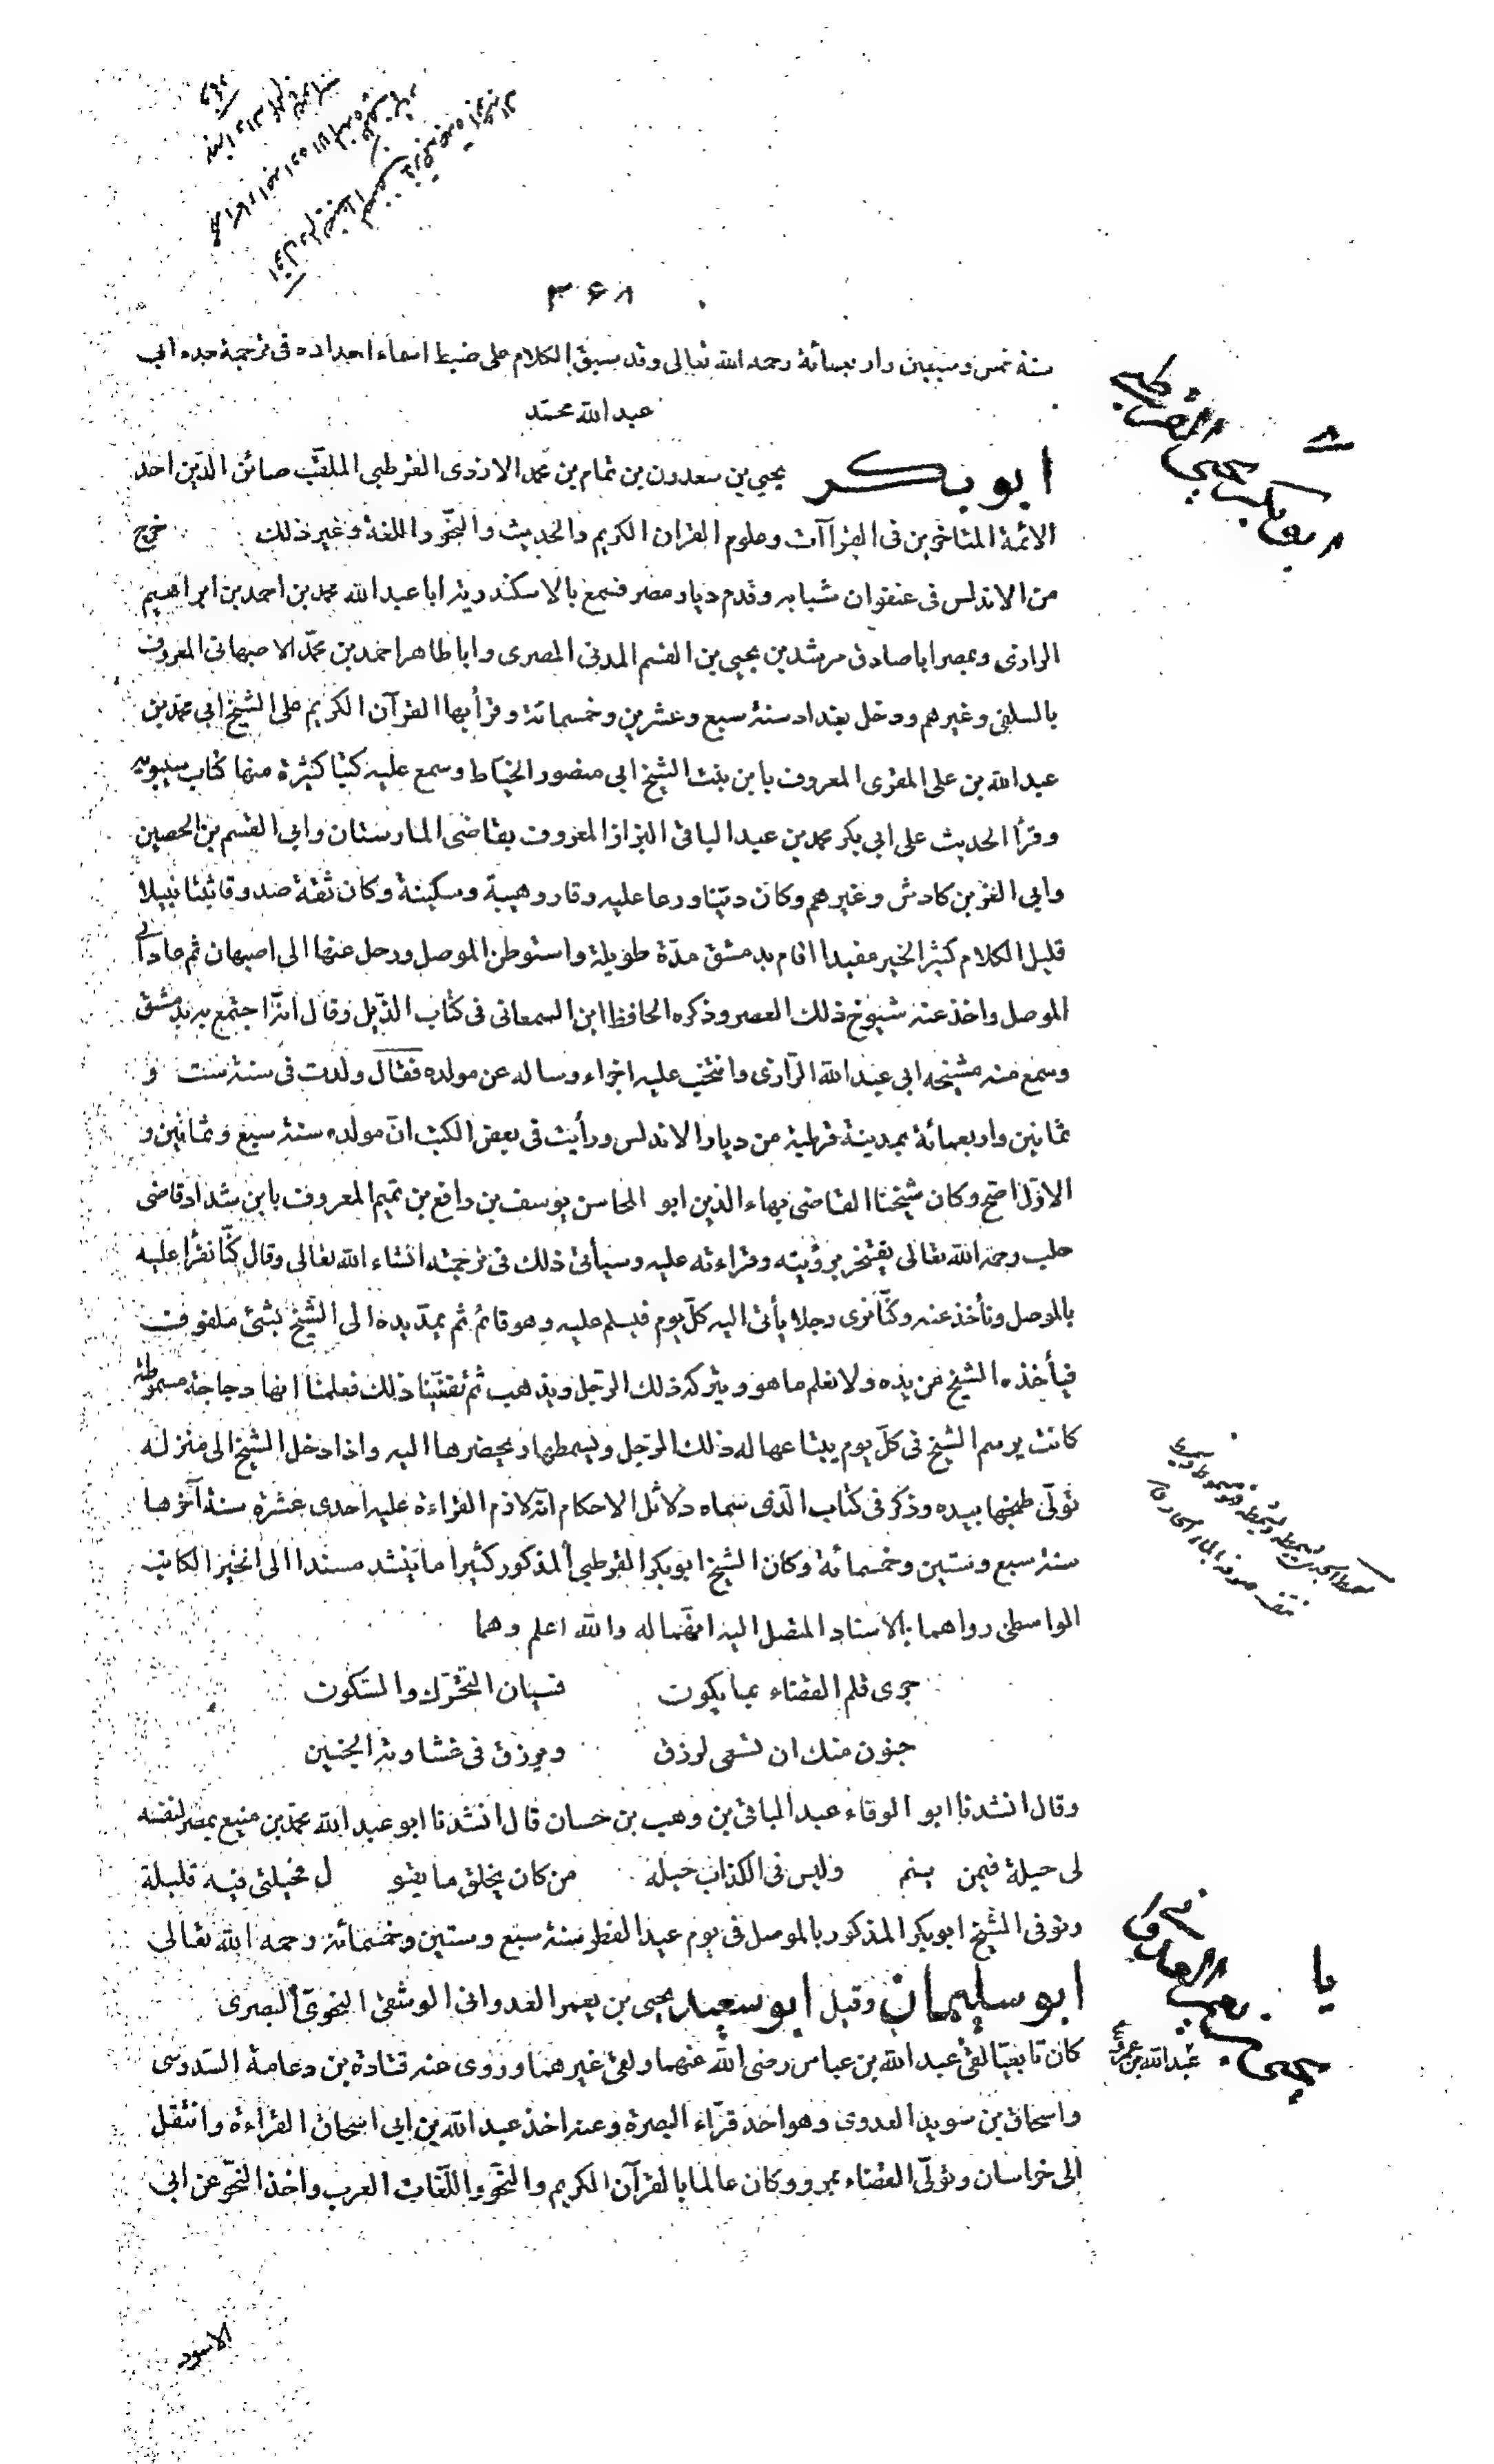 ٣٤٨
سنة خمس وسبعين واربعمائة رحمه الله تعالى وقد سبق الكلام على ضبط اسماء اجداده فى ترجمة جده ابى
عبد الله محمد
ابو بكر يحيى بن سعدون بن تمام بن محمد الازدى القرطبى الملقّب صائن الدّين احد
الائمة المتاخرين فى القرآآت وعلوم القران الكريم والحديث والنّحو واللغة وغير ذلك خرج
من الاندلس فى عنفوان شبابه وقدم ديار مصر فسمع بالاسكندرية ابا عبد الله محمد بن احمد بن ابراهيم
الرازى وبمصر ابا صادق مرشد بن يحيى بن القسم المدنى المصرى وابا طاهر احمد بن محمّد الاصبهانى المعروف
بالسلفى وغيرهم ودخل بغداد سنة سبع وعشرين وخمسمائة وقرأ بها القرآن الكريم على الشيخ ابى محمد بن
عبد الله بن على المقرى المعروف بابن بنت الشيخ ابى منصور الخيّاط وسمع عليه كتبا كثيرة منها كتاب سيبويه
وقرأ الحديث على ابى بكر محمد بن عبد الباقى البزاز المعروف بقاضى المارستان وابى القسم بن الحصين
وابى العز بن كادش وغيرهم وكان ديّنا ورعا عليه وقار وهيبة وسكينة وكان ثقة صدوقا ثبتا نبيلا
قليل الكلام كثير الخير مفيدا اقام بدمشق مدّة طويلة واستوطن الموصل ورحل عنها الى اصبهان ثم عاد الى
الموصل واخذ عنه شيوخ ذلك العصر وذكره الحافظ ابن السمعانى فى كتاب الذّيل وقال انّه اجتمع به بدمشق
وسمع منه مشيخه ابى عبد الله الرّازى وانتخب عليه اجزاء وساله عن مولده فقال ولدت فى سنة ست و
ثمانين واربعمائة بمدينة قرطبة من ديار الاندلس ورأيت فى بعض الكتب انّ مولده سنة سبع وثمانين و
الاوّل اصح وكان شيخنا القاضى بهاء الدين ابو المحاسن يوسف بن رافع بن تميم المعروف بابن شداد قاضى
حلب رحمه الله تعالى يفتخر برؤيته وقراءته عليه وسيأتى ذلك فى ترجمته انشاء الله تعالى وقال كنّا نقرأ عليه
بالموصل ونأخذ عنه وكنّا نرى رجلا يأتى اليه كلّ يوم فيسلم عليه وهو قائم ثم يمدّ يده الى الشّيخ بشئ ملفوف
فيأخذه الشيخ من يده ولا نعلم ما هو ويتركه ذلك الرّجل ويذهب ثم تقفّينا ذلك فعلمنا انها دجاجة مسموطة
كانت برسم الشيخ فى كلّ يوم يبتاعها له ذلك الرّجل ويسمطها ويحضرها اليه واذا دخل الشيخ الى منزله
تولّى طبخها بيده وذكر فى كتاب الّذى سماه دلائل الاحكام انّه لازم القراءة عليه احدى عشرة سنة آخرها
سنة سبع وستين وخمسمائة وكان الشيخ ابو بكر القرطبى المذكور كثيرا ما ينشد مسندا الى ابى الخير الكاتب
الواسطى رواهما بالاسناد المتصل اليه انهما له والله اعلم وهما
جرى قلم القضاء بما يكون فسيان التّحرّك والسّكون
جنون منك ان تسعى لرزق ويرزق فى غشاوته الجنين
وقال انشدنا ابو الوفاء عبد الباقى بن وهب بن حسان قال انشدنا ابو عبد الله محمّد بن منيع بمصر لنفسه
لى حيلة فيمن ينم وليس فى الكذاب حيلة من كان يخلق ما يقو ل فحيلتى فيه قليلة
وتوفى الشّيخ ابو بكر المذكور بالموصل فى يوم عيد الفطر سنة سبع وستين وخمسمائة رحمه الله تعالى
ابو سليمان وقيل ابو سعيد يحيى بن يعمر العدوانى الوشقى النحوىّ البصرى
كان تابعيّا لقى عبد الله بن عباس رضى الله عنهما ولقى غيرهما وروى عنه قتادة بن دعامة السّدوسى
واسحاق بن سويد العدوى وهو احد قرّاء البصرة وعنه اخذ عبد الله بن ابى اسحاق القراءة وانتقل
الى خراسان وتولّى القضاء بمرو وكان عالما بالقرآن الكريم والنّحو واللّغات العرب واخذ النّحو عن ابى
الاسود
ابو بكر يحيى القرطبى
يا
يحيى بن يعمر العدوانى